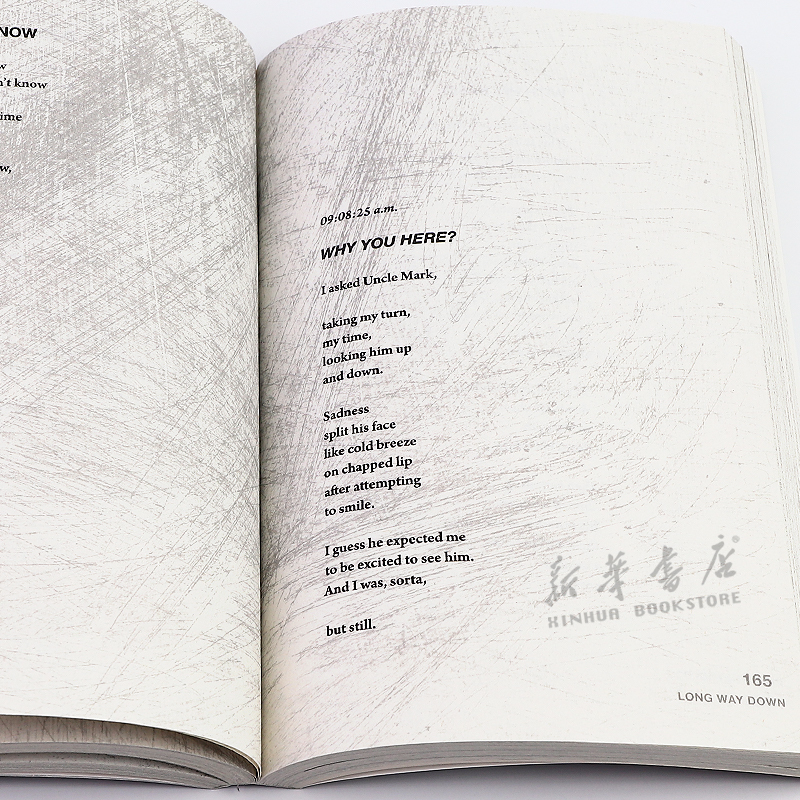 NOW
w
n't know
ime
w,
09:08:25 a.m.
WHY YOU HERE?
I asked Uncle Mark,
taking my turn,
my time,
looking him up
and down.
Sadness
split his face
like cold breeze
on chapped lip
after attempting
to smile.
I guess he expected me
to be excited to see him.
And I was, sorta,
but still.
新华书店®
XINHUA BOOKSTORE
165
LONG WAY DOWN